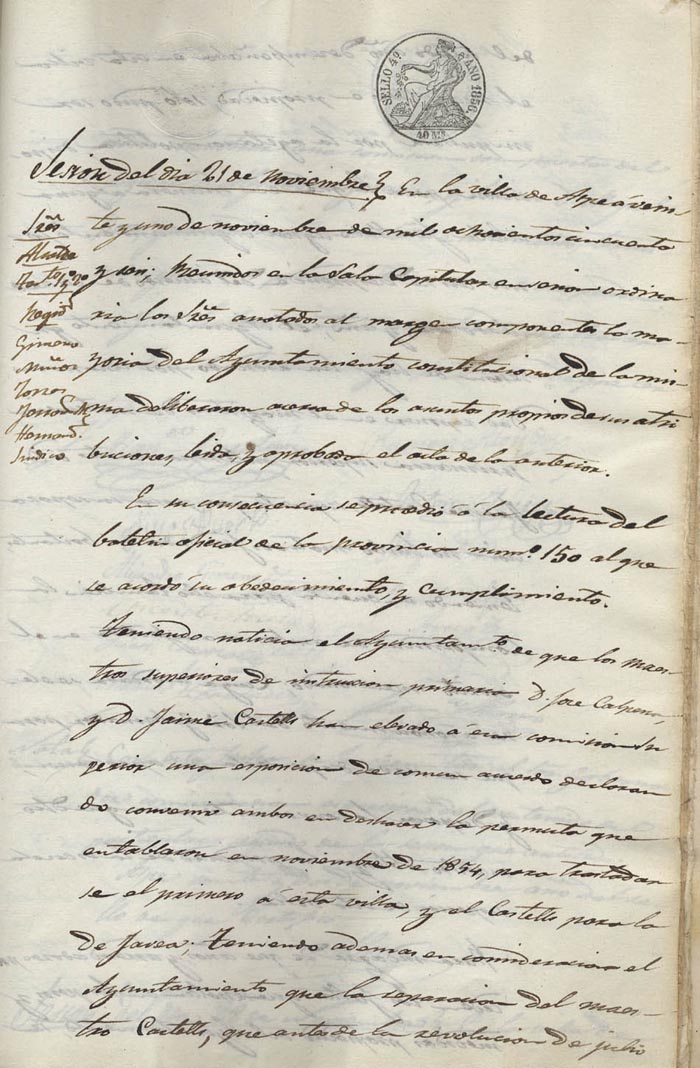 SELLO 4º. AÑO 1856.
40 Ms
Sesion del dia 21 de Noviembre
En la villa de Aspe á vein-
te y uno de noviembre de mil ochocientos cincuenta
y seis; Reunidos en la Sala Capitular en sesion ordina
ria los Sres anotados al margen componentes la ma-
yoria del Ayuntamiento constitucional de la mis
ma deliberaron acerca de los asuntos propios de su atri
buciones, leida, y aprobada el acta de la anterior.
Sres
Alcalde
Ten.tes 1º y 2º
Regid.s
Gimeno
Muñoz
Torres
Hernand.
Sindico
En su consecuencia se procedió á la lectura del
boletin oficial de la provincia num.º 150 al que
se acordó su obedecimiento, y cumplimiento.
Teniendo noticia el Ayuntam.to de que los maes-
tros superiores de intruccion primaria D. Jose Calpena,
y D. Jaime Castells han elevado á esa comision Su
perior una esposicion de comun acuerdo declaran
do convenir ambos en deshacer la permuta que
entablaron en noviembre de 1854, para trasladar
se el primero á esta villa, y el Castells para la
de Javea; Teniendo ademas en consideracion el
Ayuntamiento que la separacion del maes-
tro Castells, que antes de la revolucion de julio